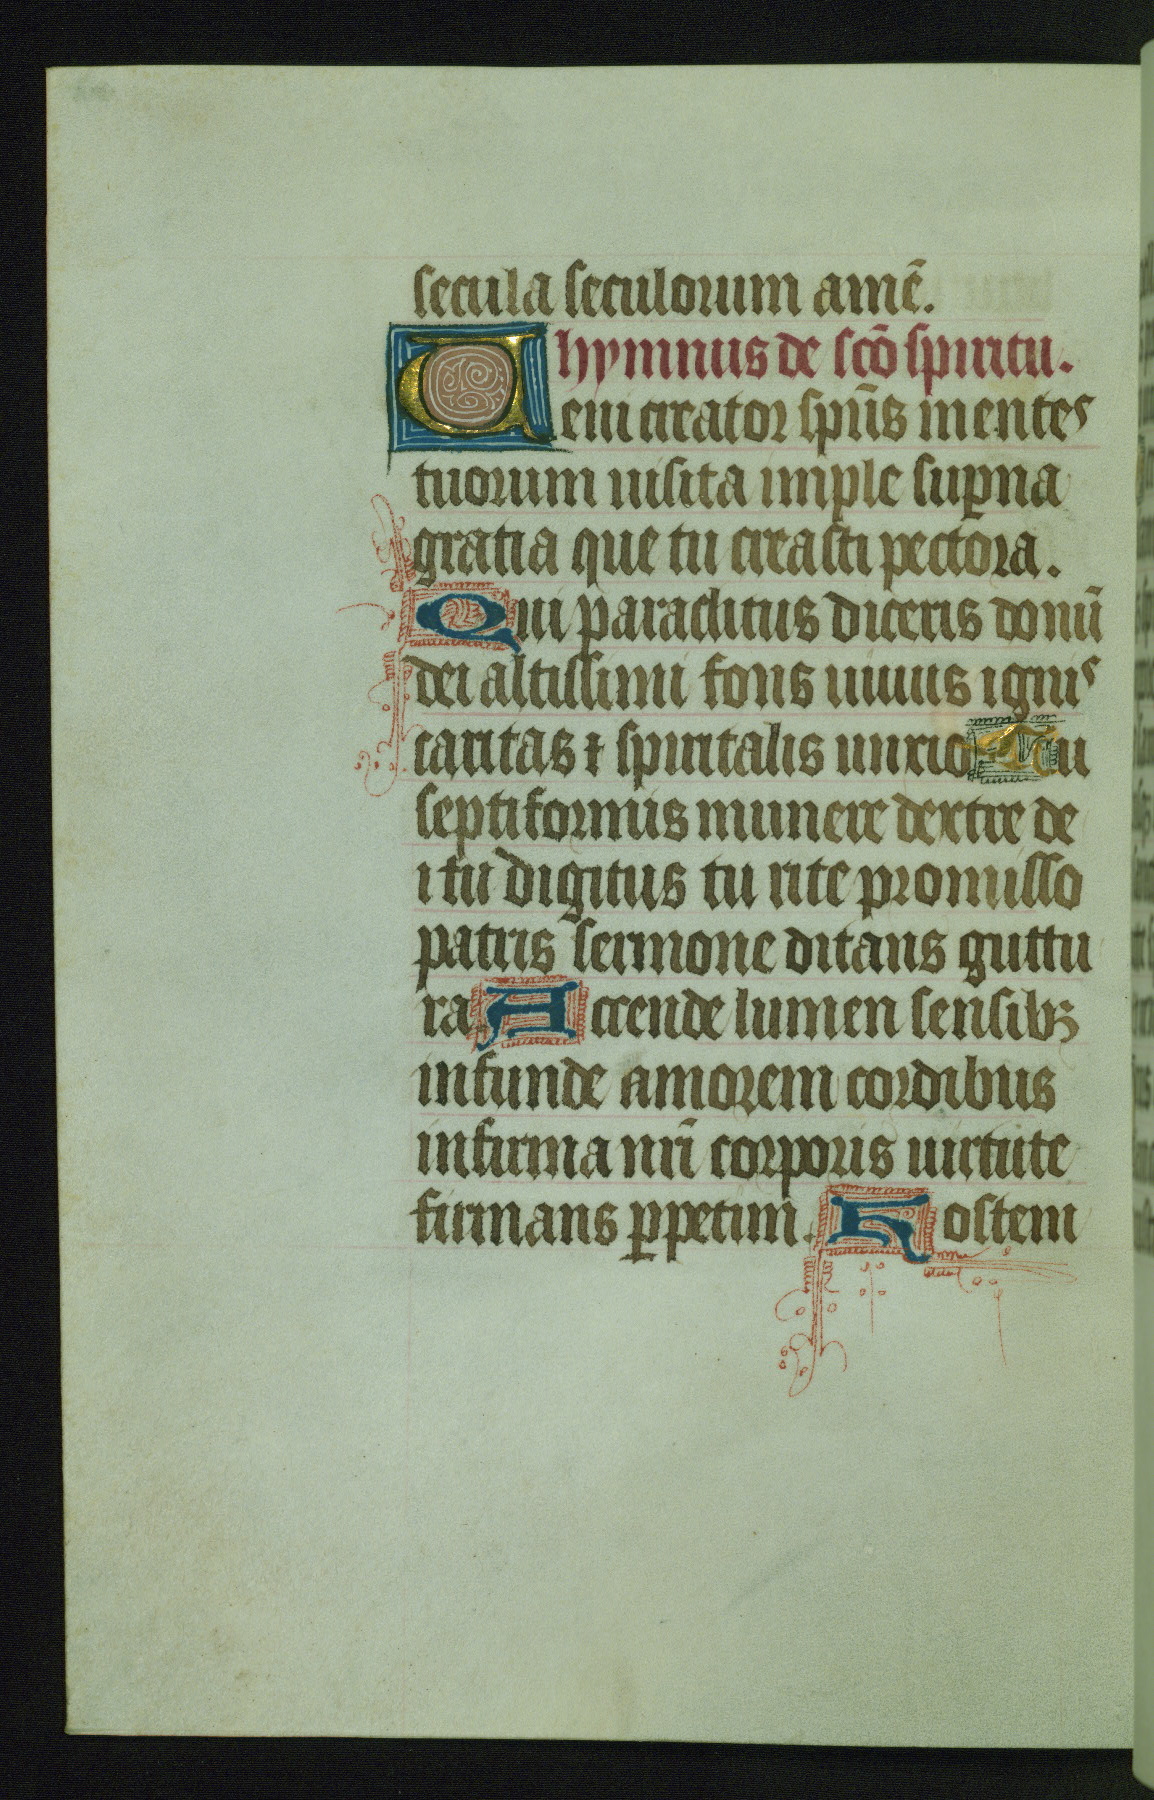 secula seculorum amē.
hymnus de scō spiritu.
Ueni creator spūs mentes
tuorum uisita imple sup̱na
gratia que tu creasti pectora.
Qui paraclitus diceris donū
dei altissimi fons uiuus ignis
caritas ⁊ spiritalis unxio Tu
septiformis munere dextre de
i tu digitus tu rite promisso
patris sermone ditans guttu
ra Accende lumen sensibꝫ
infunde amorem cordibus
infirma nrī corporis uirtute
firmans ꝑpetim. Hostem